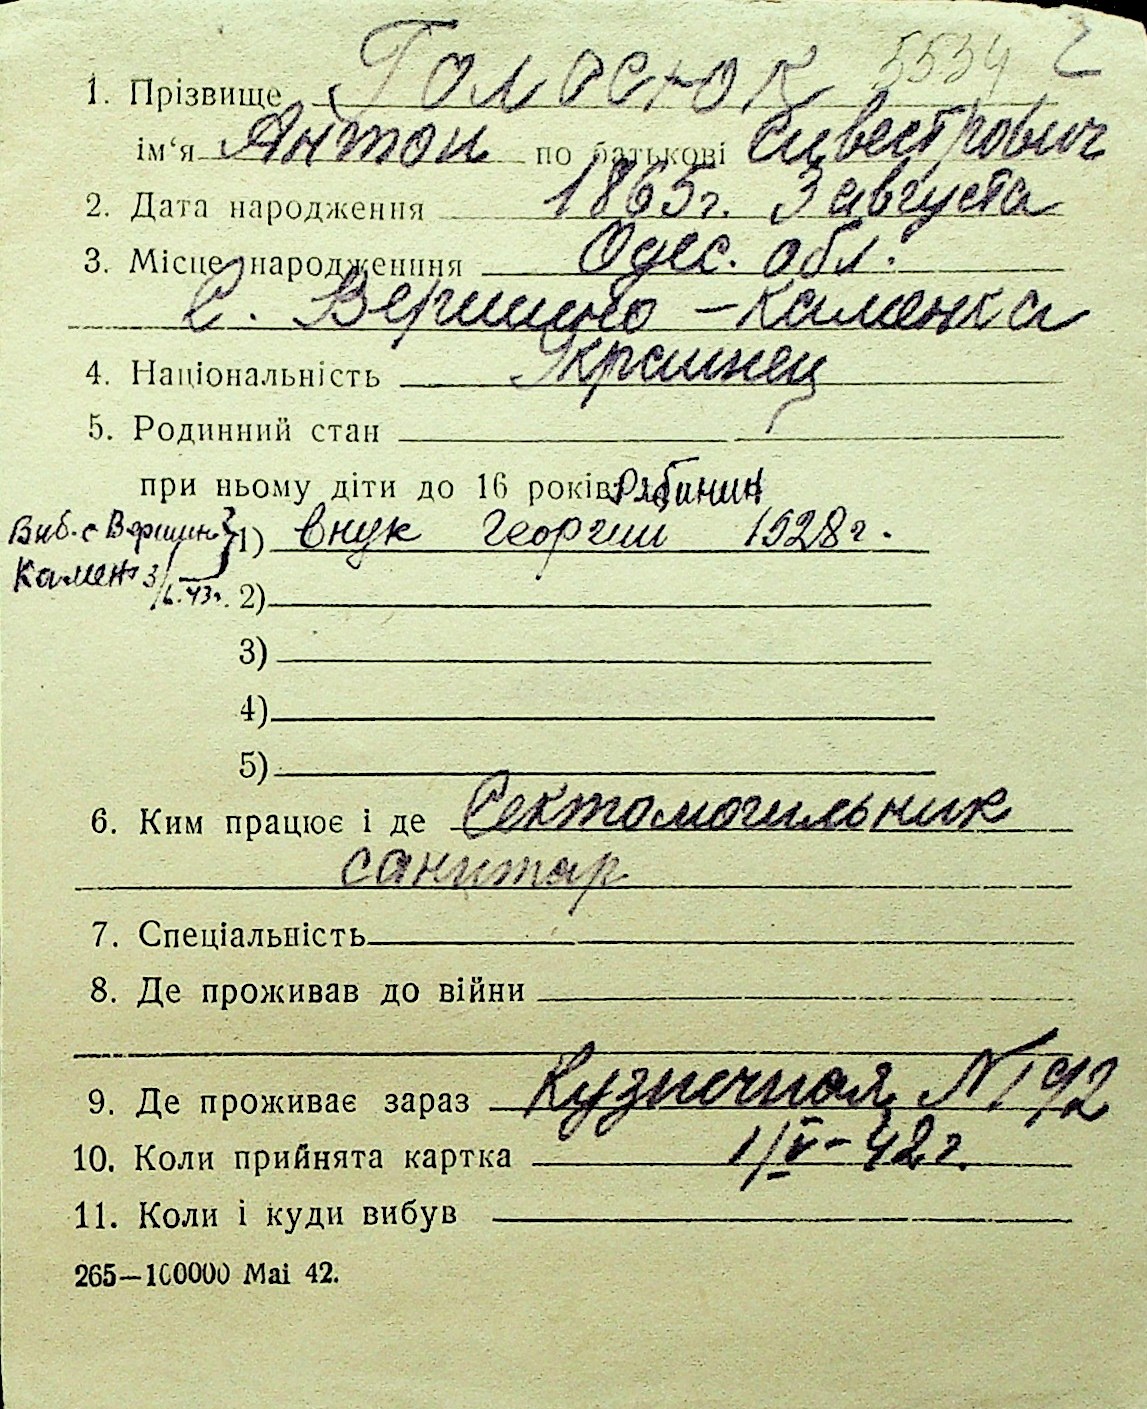 5534 2
1. Прізвище Голосюк
ім‘я Антон по батькові Сивестрович
2. Дата народження 1865г. 3 августа
3. Місце народженння Одес. обл.
С. Вершино-Каменка
4. Національність Украинец
5. Родинний стан
при ньому діти до 16 років: Рябинин
Виб. с Вершин 1) внук Георгии 1928г.
Камен. 3/6.43г. 2)
3)
4)
5)
6. Ким працює і де Сектомогильник
санитар
7. Спеціальність
8. Де проживав до війни
9. Де проживає зараз Кузнечная N 192
10. Коли прийнята картка 1/V-42г.
11. Коли і куди вибув
265—100000 Mai 42.